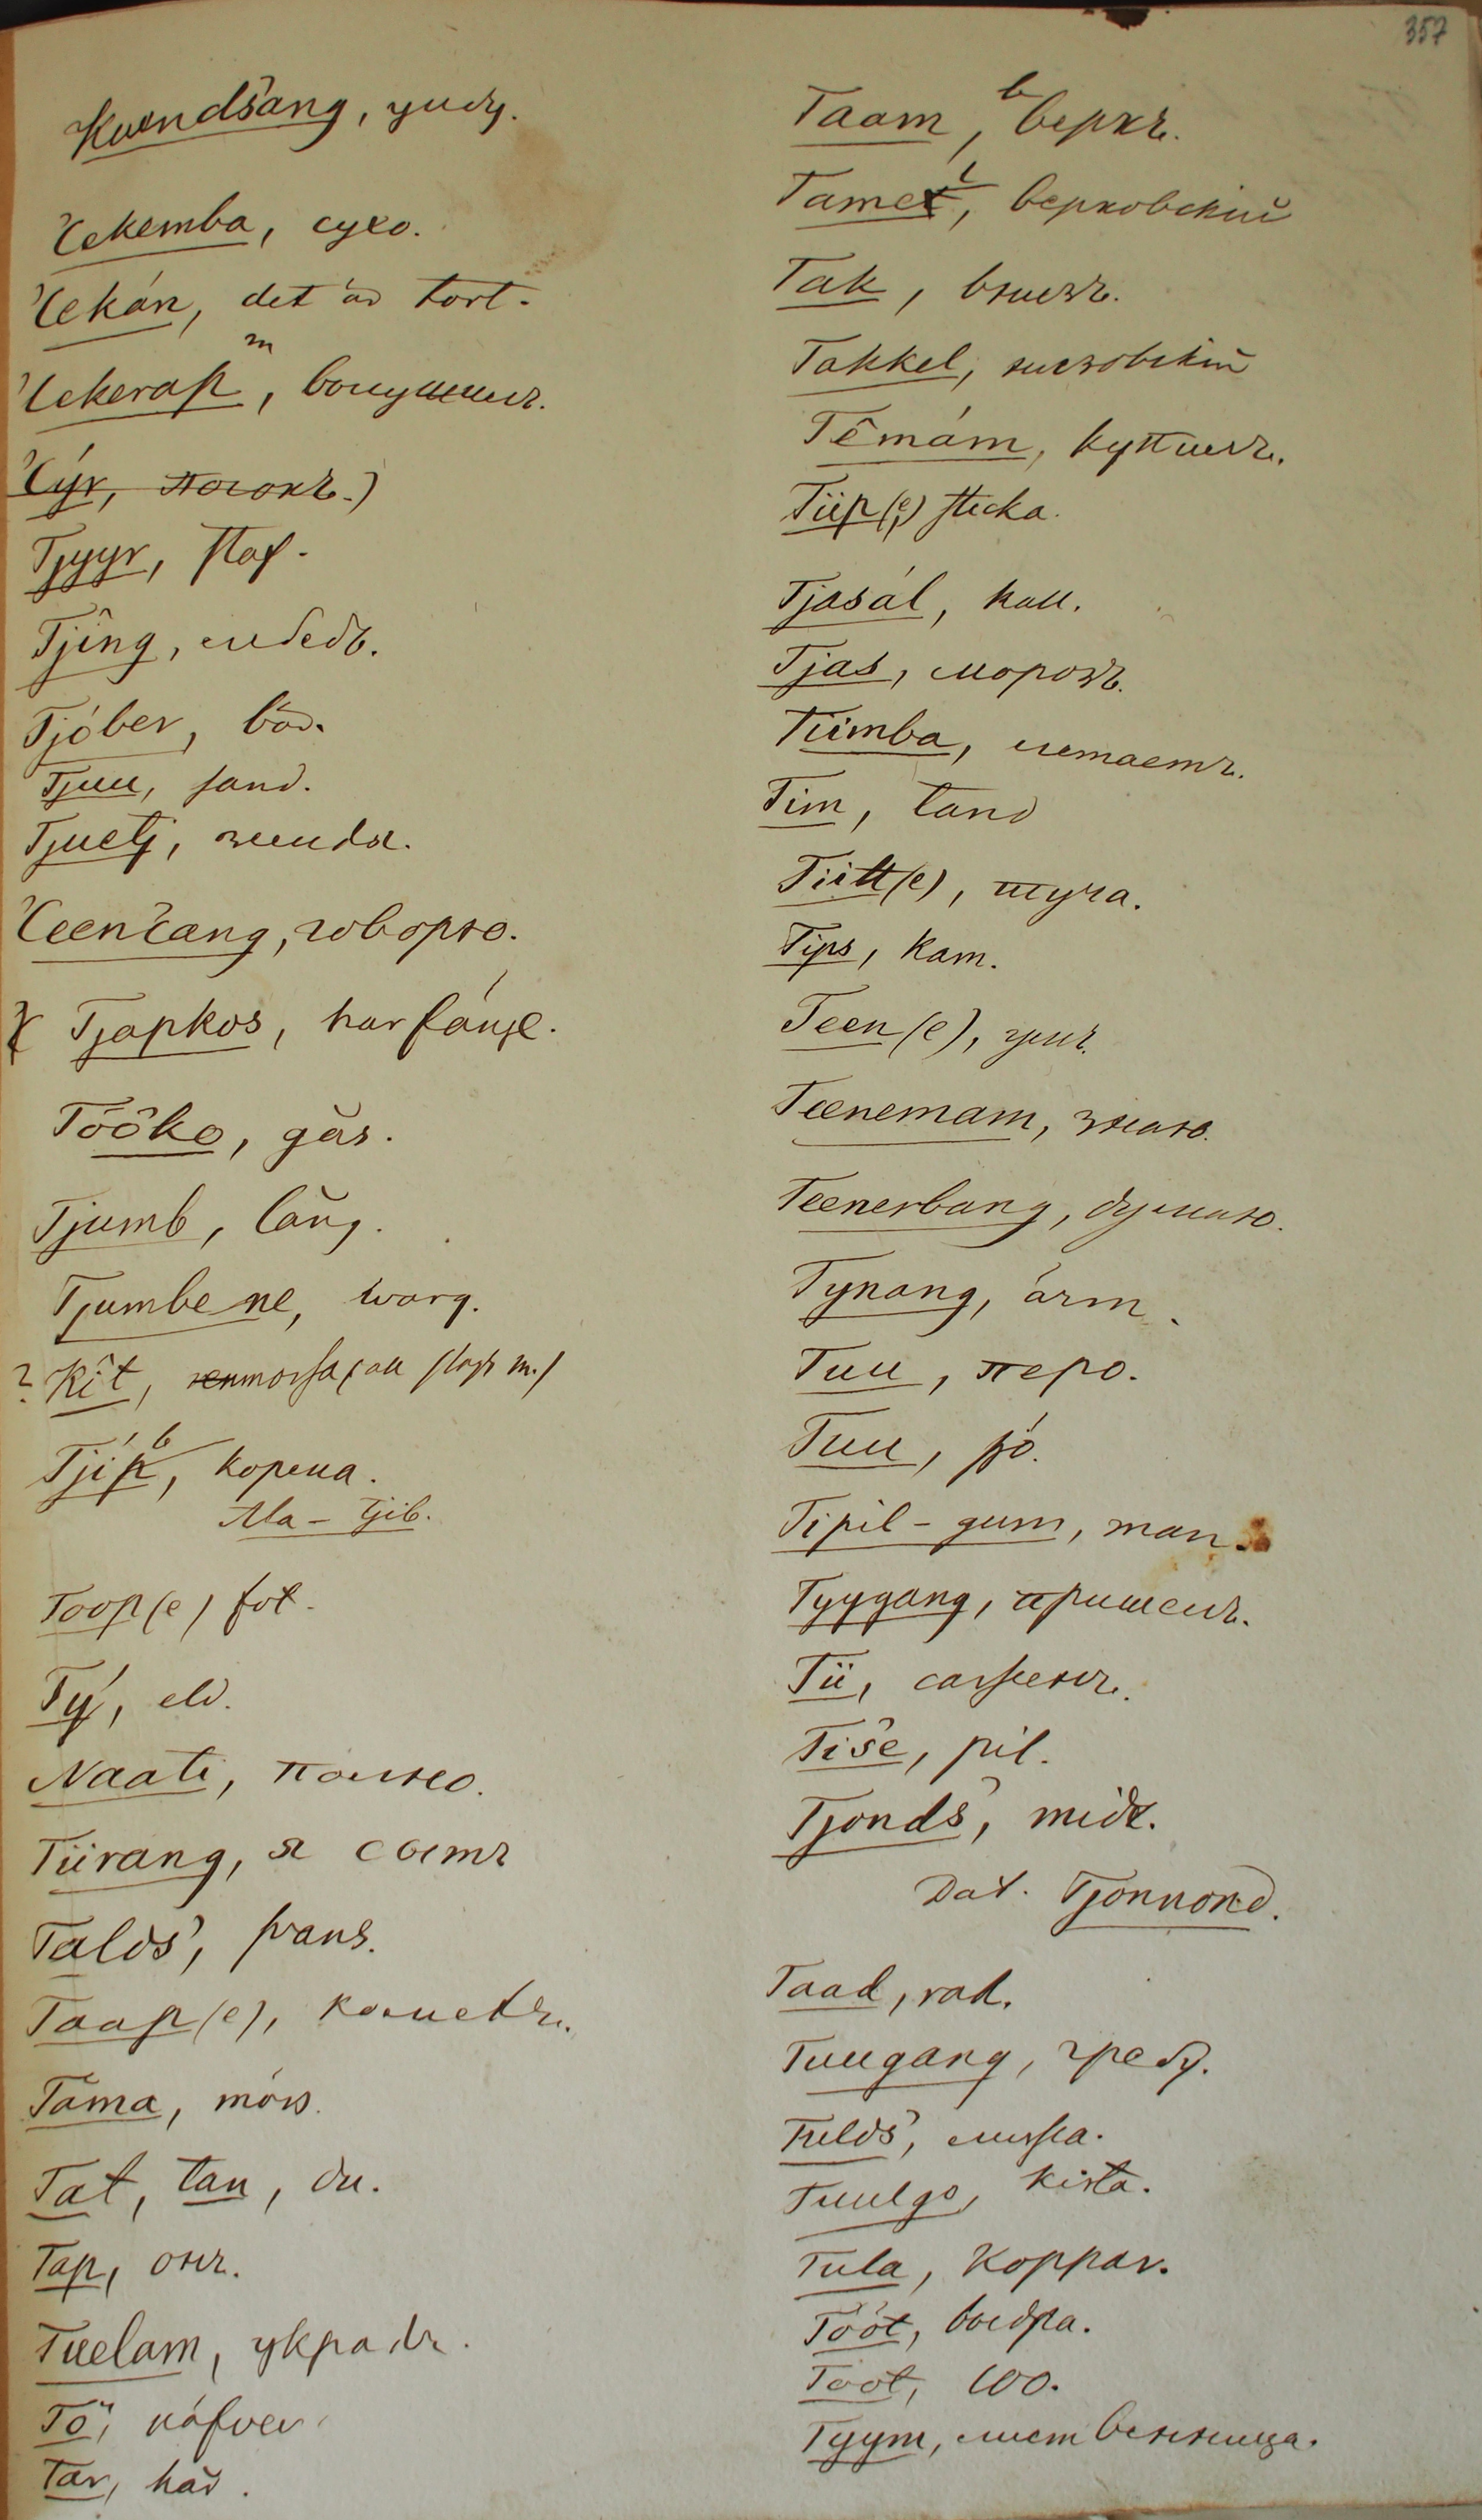 357
Kuendšang, удгу.
Čekemba, сухо.
Čekán, det är tort.
Čekerap m,
Čýr, потокъ.)
Tjyyr, staf.
Tjîng, лебедь.
Tjóber, bär.
Tjuu, sand.
Tjuetj, земля.
Čeenčang, говорю.
Tjapkos, harfånge.
Töökö, gås.
Tjumb, lång.
Tjumbe ne, warg.
? Kît,
Tjip b, корень.
Ala - tjib.
Toop(e) fot.
Tý, eld.
Naati, полно.
Tiirang, я сытъ
Talds, svans.
Taap(e),
Tama, mös.
Tat, tan, du.
Tap, онъ.
Tuelam, укралъ.
Tö, näfver
Tar, hår.
Taam b, верхъ.
Tamel, верховскій
Tak, внизъ.
Takkel, низовскій
Têmám, купилъ.
Tiip(e) sticka.
Tjasál, kall.
Tjas, морозъ.
Tiimba, летаетъ.
Tim, tand
Tiitt(e), туча.
Tips, kam.
Teen(e), умъ.
Teenemam, знаю.
Teenerbang, думаю.
Tynang, årm.
Tuu, перо.
Tuu, sjö.
Tipil-gum, man.
Tyygang, пришелъ.
Tii, саженъ.
Tiše, pil.
Tjonds, midt.
Dat. Tjonnond.
Taad, rad.
Tuugang, гребу.
Tulds, лыжа.
Tuulgo, kista.
Tula, Koppar.
Tööt, выдра.
Toot, 100.
Tyym, лиственница.